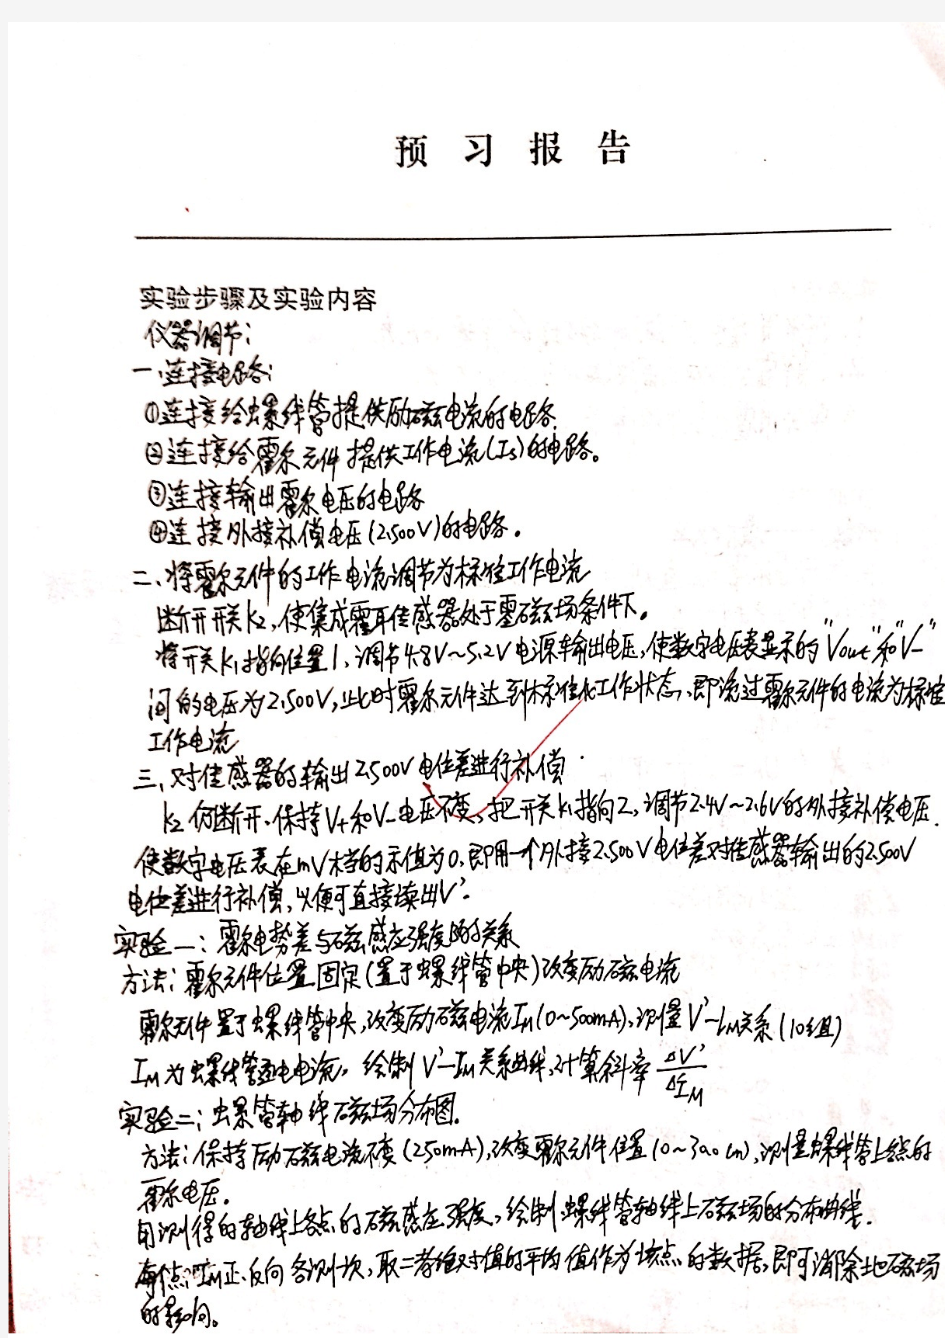 预习报告
实验步骤及实验内容
仪器调节：
一、连接电路：
①连接给螺线管提供励磁电流的电路.
②连接给霍尔元件提供工作电流(Is)的电路。
③连接输出霍尔电压的电路
④连接外接补偿电压(2.500V)的电路。
二、将霍尔元件的工作电流调节为标准工作电流
断开开关K2,使集成霍耳传感器处于零磁场条件下。
将开关K1指向位置1,调节4.8V~5.2V电源输出电压,使数字电压表显示的"Vout"和"V-"
间的电压为2.500V,此时霍尔元件达到标准化工作状态,即流过霍尔元件的电流为标准
工作电流
三、对传感器的输出2.500V电位差进行补偿
K2仍断开,保持V+和V-电压不变,把开关K1指向2,调节2.4V~2.6V的外接补偿电压.
使数字电压表在mV档的示值为0,即用一个外接2.500V电位差对传感器输出的2.500V
电位差进行补偿,以便可直接读出V'.
实验一：霍尔电势差与磁感应强度的关系
方法：霍尔元件位置固定(置于螺线管中央)改变励磁电流
霍尔元件置于螺线管中央,改变励磁电流IM(0~500mA),测量V'-IM关系(10组)
IM为螺线管通电电流,绘制V'-IM关系曲线,计算斜率 ΔV'/ΔIM
实验二：螺管轴线磁场分布图.
方法：保持励磁电流不变(250mA),改变霍尔元件位置(0~30.0cm),测量螺线管上各点的
霍尔电压。
由测得的轴线上各点的磁感应强度,绘制螺线管轴线上磁场的分布曲线.
每个点IM正、反向各测1次,取二者绝对值的平均值作为该点的数据,即可消除地磁场
的影响。